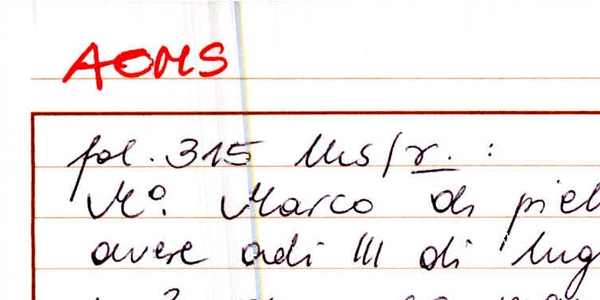 AOMS
fol. 315 MS/r. :
Mº. Marco di piel
avere adi III di lug